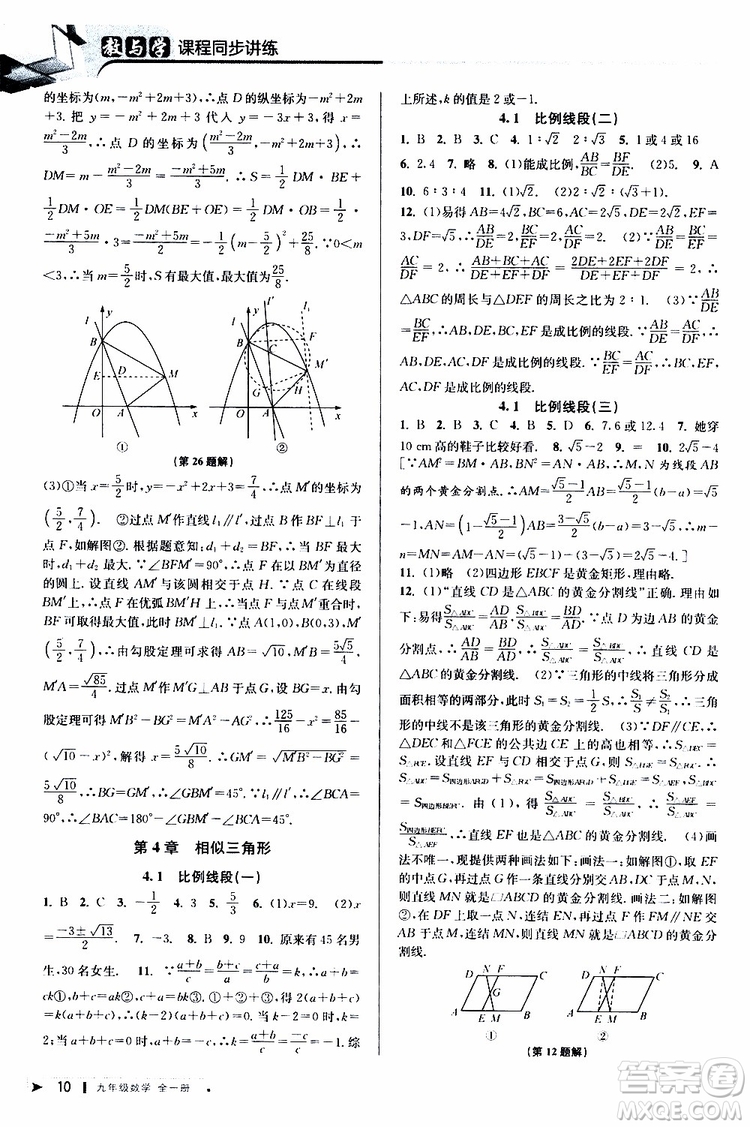 教与学 课程同步讲练
的坐标为(m,-m²+2m+3),∴点 D 的纵坐标为-m²+2m
+3. 把 y=-m²+2m+3 代入 y=-3x+3,得 x=
(m²-2m)/3,∴点 D 的坐标为((m²-2m)/3,-m²+2m+3),∴
DM=m-(m²-2m)/3=(-m²+5m)/3. ∴S=1/2DM·BE+
1/2DM·OE=1/2DM(BE+OE)=1/2DM·OB=1/2×
(-m²+5m)/3·3=(-m²+5m)/2=-1/2(m-5/2)²+25/8. ∵0<m
<3,∴当 m=5/2时,S有最大值,最大值为25/8.
y
B
E
D
M
O
A
x
①
y
l′
l₁
B
C
F
M′
G
H
O
A
x
②
(第 26 题解)
(3)①当 x=5/2时,y=7/4,∴点 M′的坐标为
(5/2,7/4). ②过点 M′作直线l₁∥l′,过点 B 作 BF⊥l₁于
点 F,如解图②. 根据题意知:d₁+d₂=BF,此时只要求出
BF 的最大值即可. ∵∠BFM′=90°,∴点 F 在以 BM′为直径
的圆上. 设直线 AM′与该圆相交于点 H. ∵点 C 在线段
BM′上,∴点 F 在优弧BM′H上,∴当点 F 与点 M′重合时,
BF 可取得最大值,此时 BM′⊥l₁. ∵A(1,0),B(0,3),
M′(5/2,7/4),∴由勾股定理可求得 AB=√10,M′B=5√5/4,
M′A=√85/4. 过点 M′作 M′G⊥AB 于点G,设BG=x,∴由勾
股定理可得 M′B²-BG²=M′A²-AG²,∴125/16-x²=85/16-
(√10-x)²,解得 x=5√10/8. ∴M′G=√(M′B²-BG²)=
5√10/8,∴BG=M′G,∴∠GBM′=45°. ∵l₁∥l′,∴∠BCA=
90°,∴∠BAC=45°.
第 4 章 相似三角形
4.1 比例线段(一)
1. B 2. C 3. B 4. -1/2 5. √3/2 6. (1)x=9. (2)x=
(-3±√13)/2. 7. -3 8. B 9. B 10. 原来有 45 名男
生,30 名女生. 11. ∵(a+b)/c=(b+c)/a=(a+c)/b=k,∴a+b=
ck①,b+c=ak②,a+c=bk③. ①+②+③,得 2(a+b+c)=
k(a+b+c). 当 a+b+c≠0 时,k=2(a+b+c)/(a+b+c)=2;当 a+
b+c=0 时,则 a+b=-c,∴k=(a+b)/c=-c/c=-1. 综
10 九年级数学 全一册
上所述,k 的值是 2 或-1.
4.1 比例线段(二)
1. B 2. B 3. C 4. 1∶√2 2∶√3 5. 1 或 4 或 16
6. 2.4 7. 略 8. (1)能成比例,AB/BC=BF/DE. (2)5. 9. A
10. 6∶3∶4 11. (1)2∶√3. (2)2∶(√3+1).
12. (1)易得 AB=4√2,BC=4,DE=2√2,EF=2√2,∠DEF=
3. ∵AB/DE=4√2/2√2=2,BC/DF=4/2=2,AC/EF=4√2/2√2=2,∴AB/DE=BC/DF=
AC/EF. (2)∵(AB+BC+AC)/(DE+DF+EF)=(2DE+2DF+2EF)/(DE+DF+EF)=2,∴
△ABC 的周长与△DEF 的周长之比为 2∶1. (3)∵AB/DE
=BC/EF,∴AB,DE,BC,EF 是成比例的线段. ∵AB/DE=AC/DF,
∴AB,DE,AC,DF 是成比例的线段. ∵BC/EF=AC/DF,∴
BC,EF,AC,DF 是成比例的线段.
4.1 比例线段(三)
1. B 2. B 3. C 4. B 5. 2 6. 7.6 或 12.4 7. 她穿
10 cm 高的鞋子比较好看. 8. √5-1 9. A 10. 2√5-4
[∵AM²=BM·AB,BN²=AN·AB,∴M,N 为线段 AB
的两个黄金分割点,∴AM=(√5-1)/2AB=(√5-1)/2(b-a)=√5
-1,AN=(1-(√5-1)/2)AB=(3-√5)/2(b-a)=3-√5,∴m-
n=MN=AM-AN=(√5-1)-(3-√5)=2√5-4. ]
11. (1)略 (2)四边形 EBCF 是黄金矩形,理由略.
12. (1)“直线 CD 是△ABC 的黄金分割线”正确. 理由如
下:易得S△ADC/S△ABC=AD/AB,S△BDC/S△ADC=BD/AD. ∵点 D 为边 AB 的黄金
分割点,∴AD/AB=BD/AD,∴S△ADC/S△ABC=S△BDC/S△ADC,∴直线 CD 是
△ABC 的黄金分割线. (2)∵三角形的中线将三角形分成
面积相等的两部分,此时 S₁=S₂=1/2S,∴S₁/S≠S₂/S₁,∴三角
形的中线不是该三角形的黄金分割线. (3)∵DF∥CE,∴
△DEC 和△FCE 的公共边 CE 上的高相等,∴S△DEC=
S△FCE. 设直线 EF 与 CD 相交于点 G,则S△DGE=S△FGC,
∴S△ADC=S四边形AFGD+S△FGC=S四边形AFGD+S△DGE=S△AEF,
S△BDC=S四边形BEFC. 由(1),得S△ADC/S△ABC=S△BDC/S△ADC,∴S△AEF/S△ABC=
S四边形BEFC/S△AEF,∴直线 EF 也是△ABC 的黄金分割线. (4)画
法不唯一,现提供两种画法:画法一:如解图①,取 EF 的
中点 G,过点 G 作一条直线分别交 AB,DC 于点 M,N,
则直线 MN 就是▱ABCD 的黄金分割线. 画法二:如解图
②,在 DF 上取一点 N,连结 EN,过点 F 作 FM∥NE 交
AB 于点 M,连结 MN,则直线 MN 就是▱ABCD 的黄金分
割线.
D N F C
G
A E M B
①
D N F C
A E M B
②
(第 12 题解)
答案圈